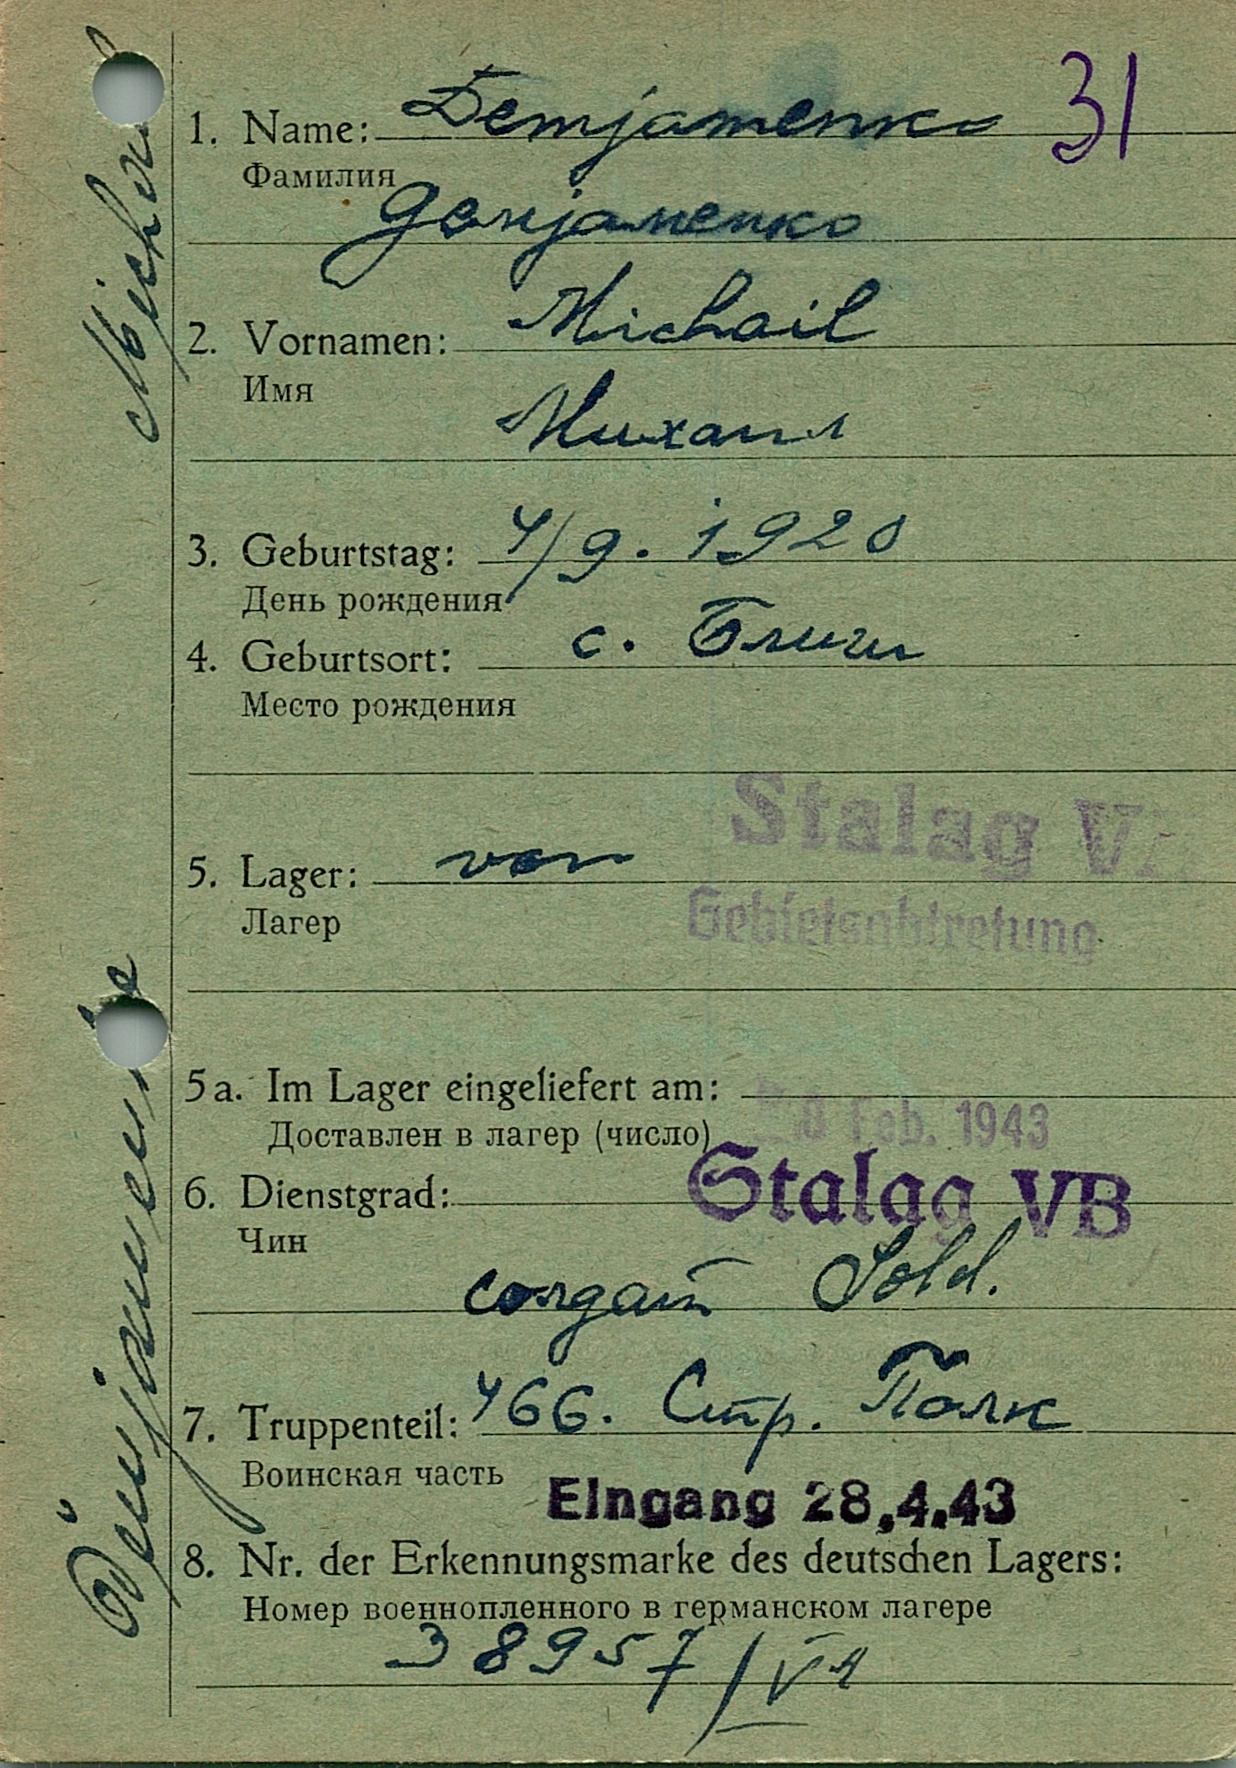 31
1. Name: Demjamenko
Фамилия
Демjаменко
2. Vornamen: Michail
Имя
Михаил
3. Geburtstag: 4/9. 1920
День рождения
4. Geburtsort: с. Блиги
Место рождения
5. Lager: von
Stalag VA
Gebietsabtretung
Лагер
5a. Im Lager eingeliefert am:
8 Feb. 1943
Доставлен в лагер (число)
Stalag VB
6. Dienstgrad:
Чин
солдат Sold.
7. Truppenteil: 466. Стр. Полк
Воинская часть
Eingang 28.4.43
8. Nr. der Erkennungsmarke des deutschen Lagers:
Номер военнопленного в германском лагере
38957/VA